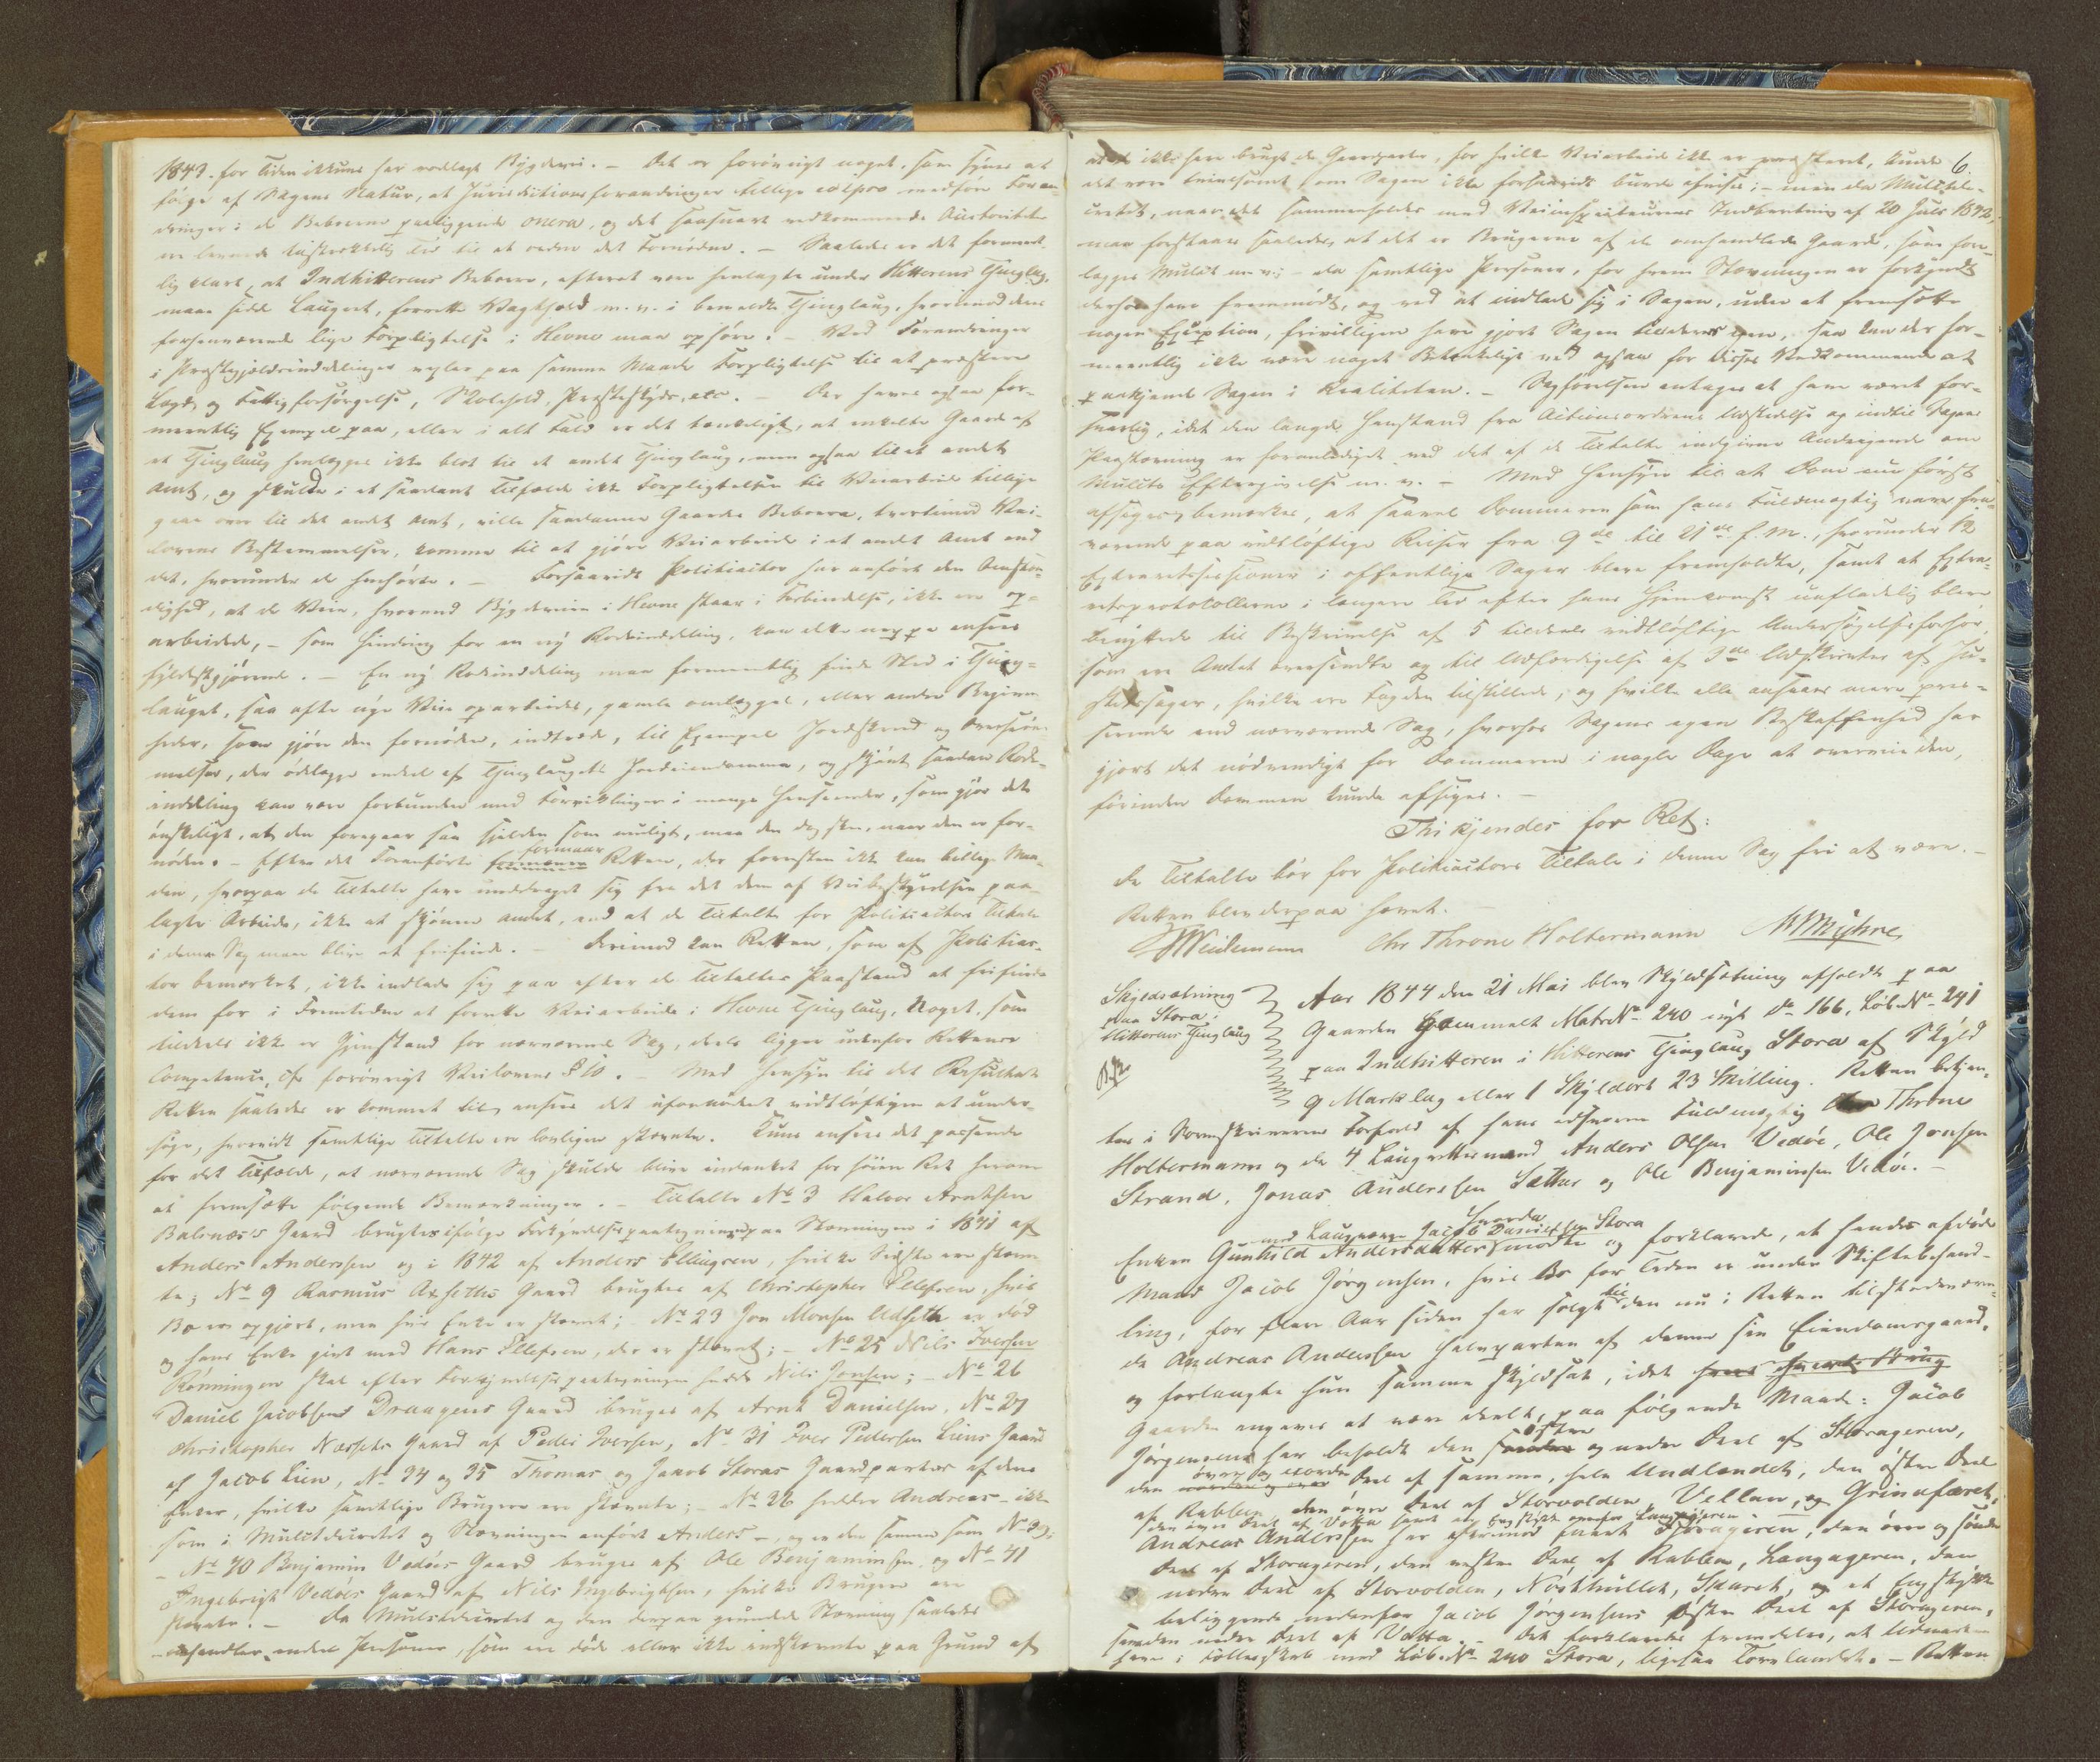 1843. for Tiden ikkuns har vedlagt Bygdevei. – Det er forövrigt noget, som synes at
fölge af Sagens Natur, at Jurisdictionsforandringer tillige eo ipso medföre Foran-
dringer i de Beboerne paaliggende onera, og det saasnart vedkommende Autoriteter
lig klart, at Indhitterens Beboere, efterat være henlagte under Hitterens Tinglag,
maae sidde Laugret, forrette Vagthold m. v. i bemeldte Thinglaug, hvorimod deres
forhenværende lige Forpligtelse i Hevne maa ophöre. – Ved Forandringer
i Præstegjeldsinddelinger paa samme Maade Forpligtelse til at præstere
Lægd og Fattigforsörgelse, Skolehold, Præsteskyds, etc. – Der haves ogsaa for-
meentlig Exempel paa, eller i alt Fald er det tænkeligt, at enkelte Gaarde af
et Thinglaug henlægges ikke blot til et andet Thinglaug, men ogsaa til et andet
Amt, og skulde i et saadant Tilfælde ikke Forpligtelsen til Veiarbeide tillige
gaae over til det andet Amt, ville saadanne Gaardes Beboere, tvertimod Vei-
lovens Bestemmelser, komme til at gjöre Veiarbeide i et andet Amt end
det, hvorunder de henhöre. – Forsaavidt Politiactor har anfört den Omstæn-
dighed, at de Veie, hvormed Bygdeveien i Hevne staaer i Forbindelse, ikke ere op-
arbeidede, – som Hindring for en ny Rodeinddeling, kan dette neppe ansees
fyldestgjörende. – En ny Rodeinddeling maa formeentlig finde Sted i Thing-
lauget, saa ofte nye Veie oparbeides, gamle omlægges, eller andre Begiven-
heder, som gjöre den fornöden, indtræde, til Exempel Jordskred og Oversvöm-
melser, der ödelægge endeel af Thinglaugets Jordeiendomme, og skjönt saadan Rode-
inddeling kan være forbunden med Forviklinger i mange Henseender, som gjör det
önskeligt, at den foregaaer saa sjelden som muligt, maa den dog skee, naar den er for-
nöden. – Efter det Foranförte formaaer Retten, der forresten ikke kan billige Maa-
den, hvorpaa de Tiltalte have unddraget sig fra det dem af Veibestyrelsen paa-
lagte Arbeide, ikke at skjönne andet, end at de Tiltalte for Politiactors Tiltale
i denne Sag maae blive at frifinde. – Derimod kan Retten, som af Politiac-
tor bemærket, ikke indlade sig paa efter de Tiltaltes Paastand at frifinde
dem for i Fremtiden at forrette Veiarbeide i Hevne Thinglaug, Noget, som
tildeels ikke er Gjenstand for nærværende Sag, deels ligger udenfor Rettens
Competence, cfr forövrigt Veilovens § 10. – Med Hensyn til det Resultat
Retten saaledes er kommet til, ansees det ufornödent vidtlöftigen at under-
söge, hvorvidt samtlige Tiltalte ere lovligen stævnte. Kuns ansees det passende
for det Tilfælde, at nærværende Sag skulde blive indanket for höiere Ret herom
at fremsætte fölgende Bemærkninger. – Tiltalte No 3 Halvor Arntsen
Balsnæs's Gaard brugtes ifölge Forkyndelsespaategningen paa Stævningen i 1841 af
Anders Anderssen og i 1842 af Anders Ellingsen, hvilke Sidste ere stævn-
te; No 9 Rasmus Axseths Gaard bruges af Christopher Ellefsen, hvis
Bo er opgjort, men hvis Enke er stævnt; No 23 Jon Monsen Udseth er död
og hans Enke givt med Hans Ellefsen, der er stævnt; – No 25 Nils Iversen
Rönningen skal efter Forkyndelsespaategningen hedde Nils Jonsen; – No 26
Daniel Jacobsens Draagens Gaard bruges af Arnt Danielsen, No 27
Christopher Næssets Gaard af Peder Iversen, No 31 Iver Pedersen Liens Gaard
af Jacob Lien, No 34 og 35 Thomas og Jacob Storas Gaardparter af deres
Enker, hvilke samtlige Brugere ere stævnte; – No 36 hedder Andreas – ikke
som i Mulctdecretet og Stævningen anfört Anders – og er den samme som No 39;
– No 40 Benjamin Vedöes Gaard bruges af Ole Benjaminsen og No 41
Ingebrigt Vedöes Gaard af Nils Ingebrigtsen, hvilke Brugere ere
stævnte. – Da Mulctdecretet og den derpaa grundede Stævning saaledes
omhandler endeel Personer, som ere döde eller ikke indstævnte paa Grund af
6
at de ikke have brugt de Gaardparter, for hvilke Veiarbeide ikke er præsteret, kunde
det være tvivlsomt om Sagen ikke forsaavidt burde afvises; – men da Mulctde-
cretet, naar det sammenholdes med Veiinspecteurens Indberetning af 20 Juli 1842,
maa forstaaes saaledes, at det er Brugerne af de omhandlede Gaarde, som fore-
lægges Mulct m. v; – da samtlige Personer, for hvem Stævningen er forkyndt
derhos have fremmödt, og ved at indlade sig i Sagen, uden at fremsætte
nogen Exception, frivilligen have gjort Sagen til deres egen, saa kan der for-
meentlig ikke være noget Betænkeligt ved ogsaa for disses Vedkommende at
paakjende Sagen i Realiteten. – Sagförelsen antages at have været for-
svarlig, idet den lange Henstand fra Actionsordrens Udstedelse og indtil Sagens
Paastævning er foranlediget ved det af de Tiltalte indgivne Andragende om
Mulcts Eftergivelse m. v. – Med Hensyn til at Dom nu först
afsiges, bemærkes, at saavel Dommeren som hans Fuldmægtig vare fra-
værende paa vidtlöftige Reiser fra 9de til 21de f. M., hvorunder 12
Extraretssessioner i offentlige Sager bleve fremholdte, samt at Extra-
retsprotocollerne i længere Tid efter hans Hjemkomst uafladelig bleve
benyttede til Beskrivelse af 5 tildeels vidtlöftige Undersögelsesforhör
som ere Amtet oversendte og til Udfærdigelse af 3de Udskrivter af Ju-
stitssager, hvilke ere Fogden tilstillede, og hvilke alle ansaaes mere pres-
serende end nærværende Sag, hvorhos Sagens egen Beskaffenhed har
gjort det nödvendigt for Dommeren i nogle Dage at overveie den,
förinden Dommen kunde afsiges. –
Thi kjendes for Ret:
De Tiltalte bör for Politiactors Tiltale i denne Sag fri at være. –
Retten blev derpaa hævet. –
Weidemann Chr Throne Holtermann M Myhre
Skyldsætning
paa Stora i
Hitterens Thinglaug
Aar 1844 den 21 Mai blev Skyldsætning afholdt paa
Gaarden gammelt Matr No 240 nyt do 166, Löb No 241
paa Indhitteren i Hitterens Thinglaug Stora af Skyld
9 Marklag eller 1 Skyldort 23 Skilling. Retten betjen-
tes i Sorenskriverens Forfald af hans edsvorne Fuldmægtig Throne
Holtermann og de 4 Laugrettesmænd Anders Olsen Vedöe, Ole Jonsen
Strand, Jonas Anderssen Sæther og Ole Benjaminsen Vedöe. –
med Laugværge Jacob Danielsen Stora
Enken Gunhild Andersdatter mödte og forklarede, at hendes afdöde
Mand Jacob Jörgensen, hvis Bo for Tiden er under Skiftebehand-
ling, for flere Aar siden har solgt til den nu i Retten tilstedeværen-
de Andreas Anderssen Halvparten af denne sin Eiendomsgaard,
og forlangte hun samme skyldsat, idet
Gaarden angaves at være deelt, paa fölgende Maade: Jacob
Jörgensens har beholdt den östre og nedre Deel af Storageren,
den övre og nordre Deel af samme, hele Undlandet, den östre Deel
af Rablen, den övre Deel af Storvolden, Vellan, og Grindfæret,
den övre Deel af Votta samt et Engstykke ovenfor Langageren
Andreas Anderssen har derimod faaet Storageren, den övre og söndre
Deel af Storageren, den vestre Deel af Rablen, Langageren, den
nedre Deel af Storvolden, Nösthullet, Skaret, og et Engstykke
beliggende nedenfor Jacob Jörgensens östre Deel af Storageren,
samt den nedre Deel af Votta. – Det forklaredes fremdeles, at Udmarken
haves i Fællesskab med Löb No 240 Stora, ligesaa Torvlandet. – Retten